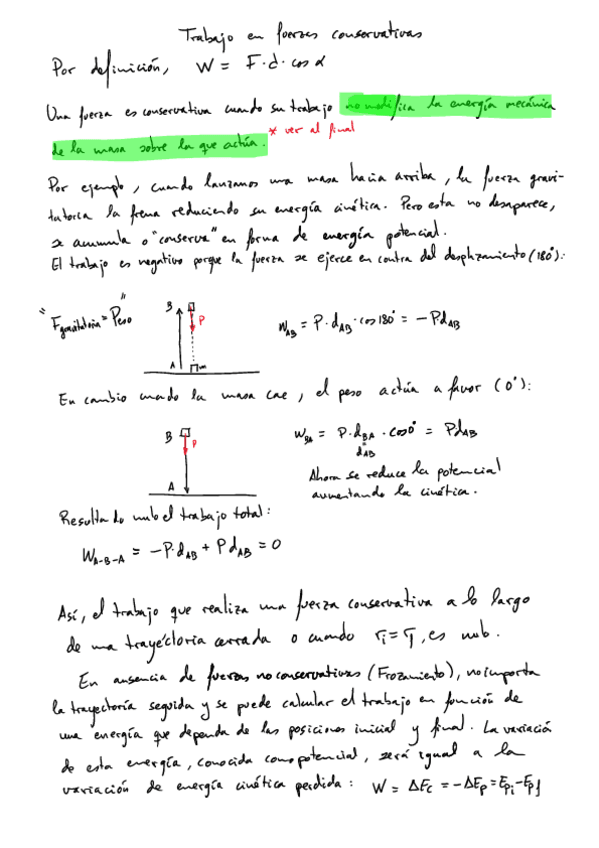 Trabajo en fuerzas conservativas
Por definición, W = F·d·cos α
Una fuerza es conservativa cuando su trabajo no modifica la energía mecánica
* ver al final
de la masa sobre la que actúa.
Por ejemplo, cuando lanzamos una masa hacia arriba, la fuerza gravi-
tatoria la frena reduciendo su energía cinética. Pero esta no desaparece,
se acumula o "conserva" en forma de energía potencial.
El trabajo es negativo porque la fuerza se ejerce en contra del desplazamiento (180°):
"Fgravitatoria = Peso"
B
P
A
m
W_AB = P·d_AB·cos 180° = -P·d_AB
En cambio cuando la masa cae, el peso actúa a favor (0°):
B
P
A
W_BA = P·d_BA·cos 0° = Pd_AB
=
d_AB
Ahora se reduce la potencial
aumentando la cinética.
Resultando nulo el trabajo total:
W_A-B-A = -P·d_AB + Pd_AB = 0
Así, el trabajo que realiza una fuerza conservativa a lo largo
de una trayectoria cerrada o cuando ri = rf, es nulo.
En ausencia de fuerzas no conservativas (Frozamiento), no importa
la trayectoria seguida y se puede calcular el trabajo en función de
una energía que dependa de las posiciones inicial y final. La variación
de esta energía, conocida como potencial, será igual a la
variación de energía cinética perdida: W = ΔEc = -ΔEp = Epi - Epf